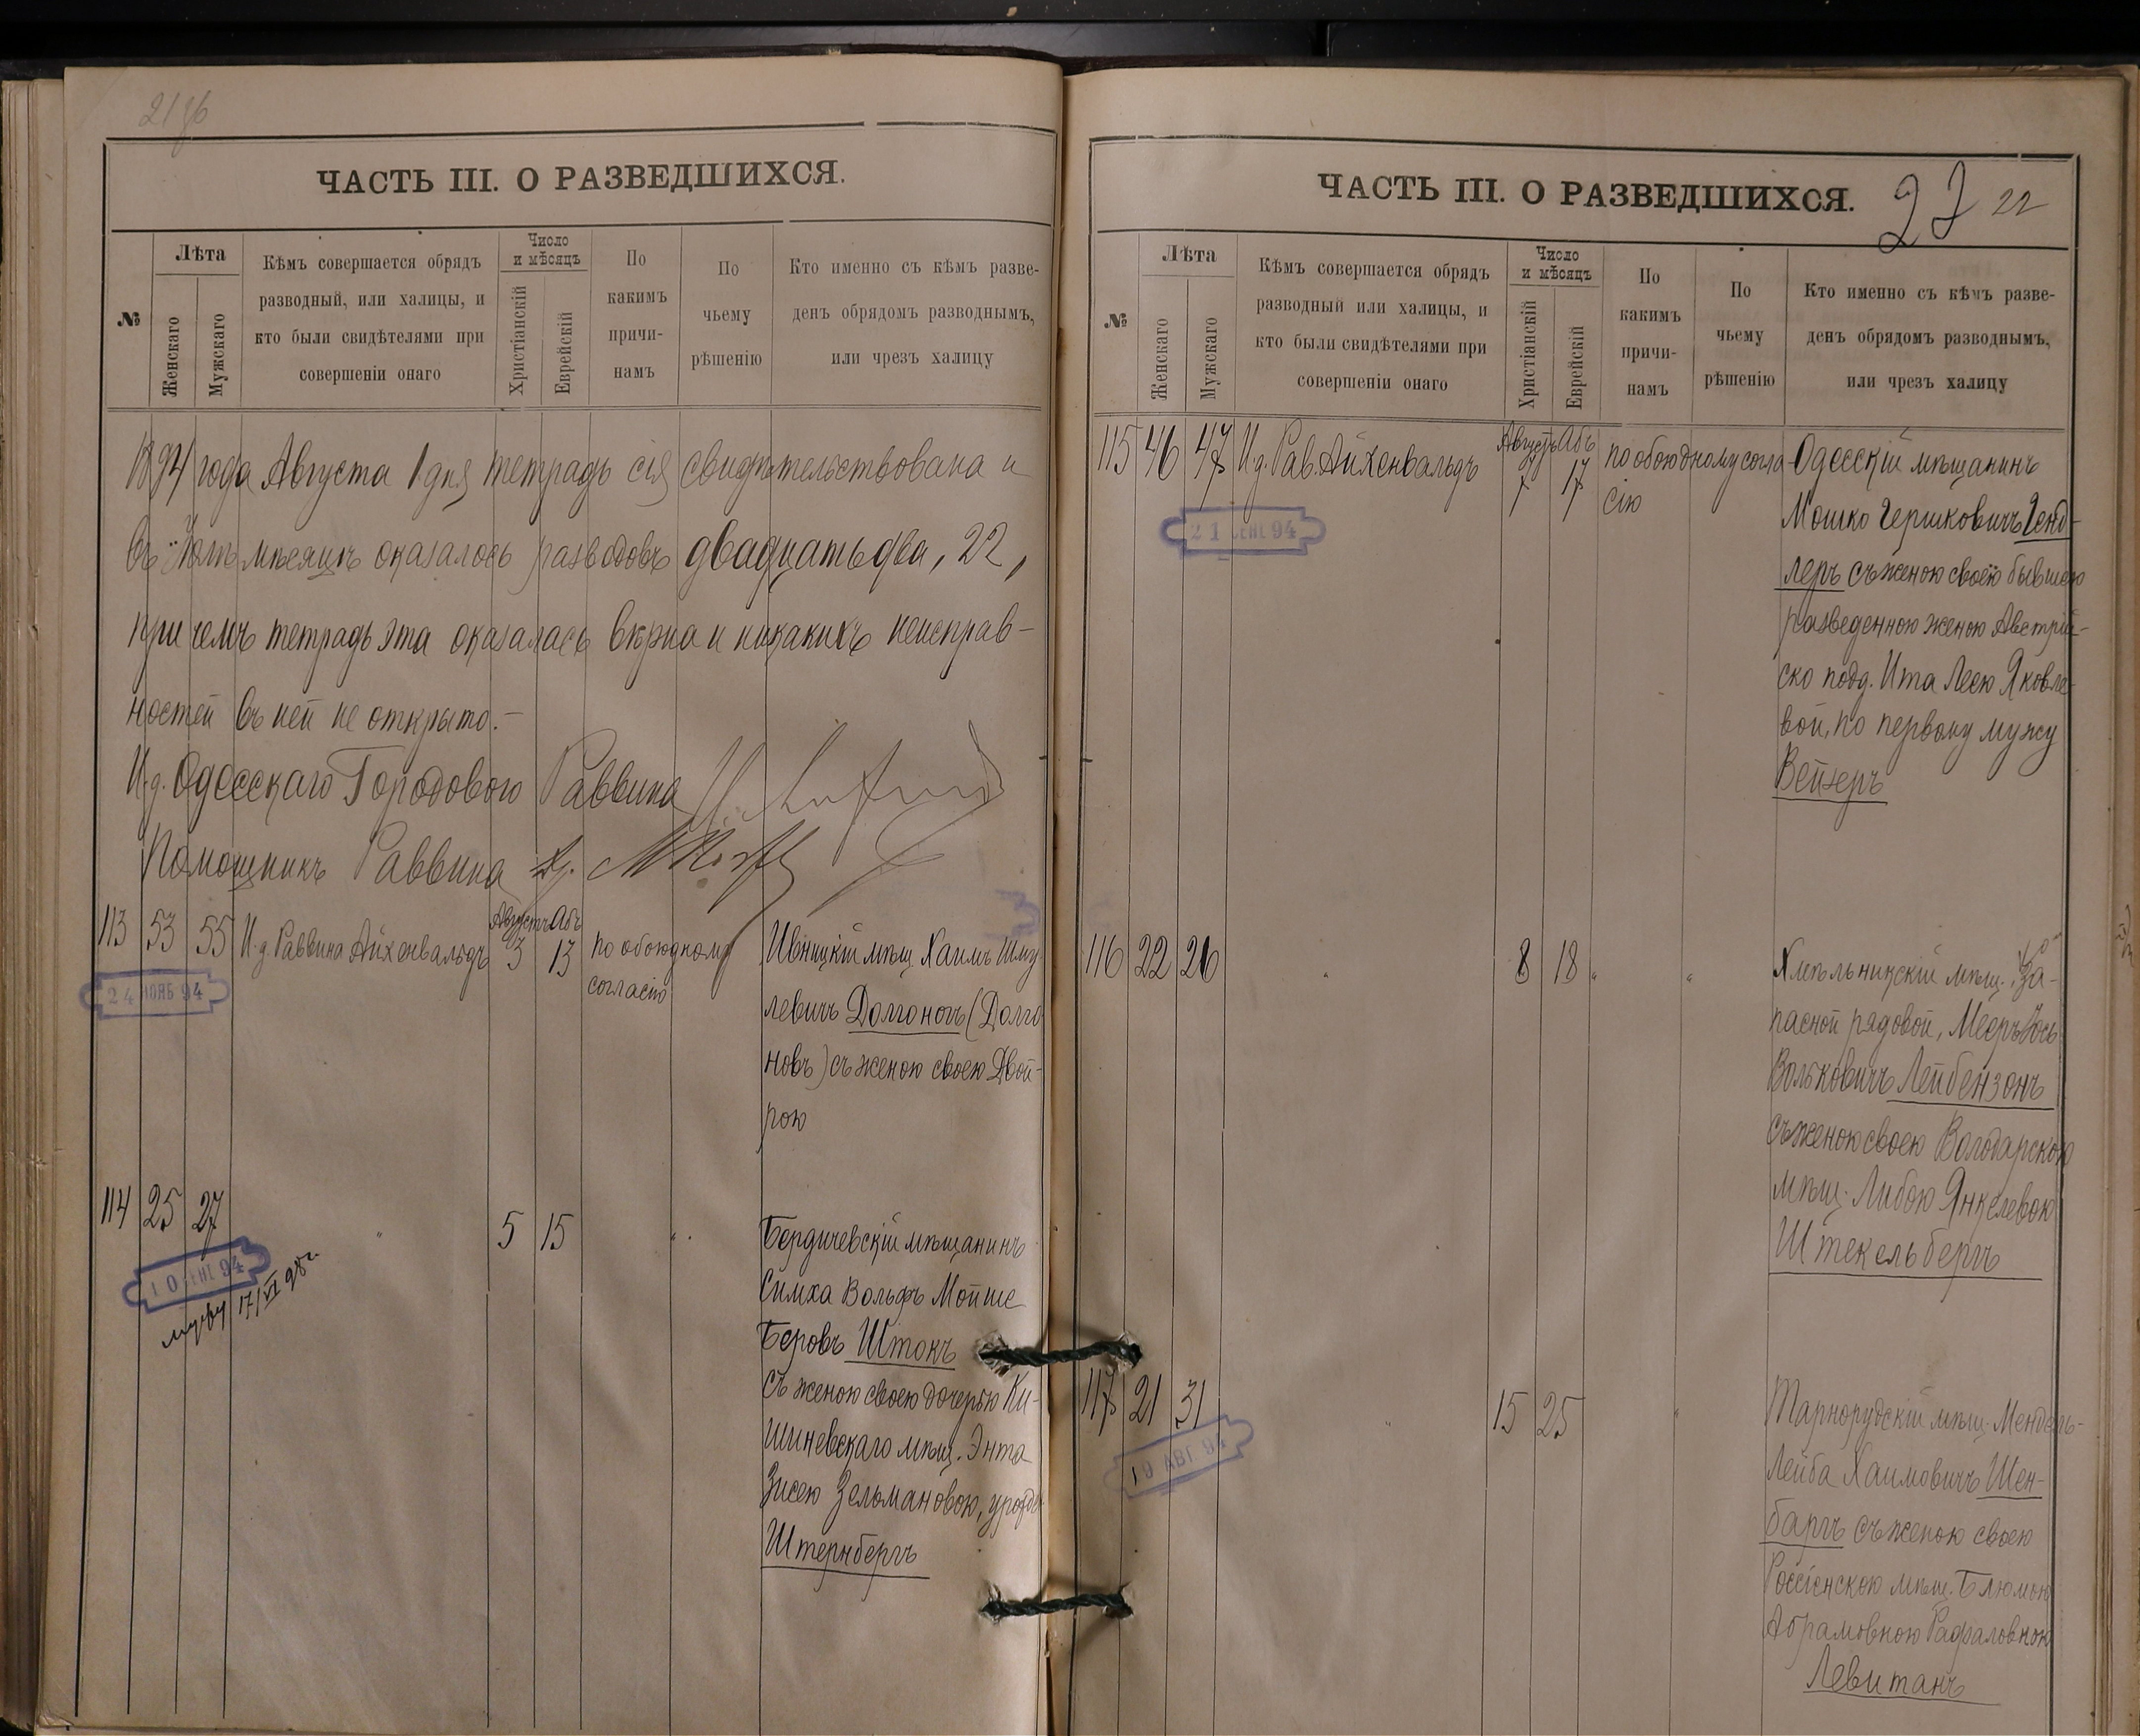 ЧАСТЬ III. О РАЗВЕДШИХСЯ.
№
Лѣта
Женскаго
Мужскаго
Кѣмъ совершается обрядъ
разводный, или халицы, и
кто были свидѣтелями при
совершеніи онаго
Число
и мѣсяцъ
Христіанскій
Еврейскій
По
какимъ
причи-
намъ
По
чьему
рѣшенію
Кто именно съ кѣмъ разве-
денъ обрядомъ разводнымъ,
или чрезъ халицу
1894 года Августа 1 дня тетрадь сія свидѣтельствована и
въ Іюлѣ мѣсяцѣ оказалось разводовъ двадцать два, 22,
при чемъ тетрадь эта оказалась вѣрна и никакихъ неисправ-
ностей въ ней не открыто.-
И.д. Одесскаго Городового Раввина
Помощникъ Раввина
113 53 55 И.д. Раввина Айхенвальдъ
Августъ 3
Абъ 13
по обоюдному
согласію
Ивницкій мѣщ. Хаимъ Шму
левичъ Долгоногъ (Долго
новъ) съ женою своею Двой-
рою
24 НОЯБ 94
114 25 27 " 5 15 "
Бердичевскій мѣщанинъ
Симха Вольфъ Мойше
Беровъ Штокъ
съ женою своею дочерью Ки-
шиневскаго мѣщ. Энта
Зисею Зельмановою, урожд.
Штернбергъ
10 СЕНТ 94
мужу 17/VI 98 г.
ЧАСТЬ III. О РАЗВЕДШИХСЯ.
22
№
Лѣта
Женскаго
Мужскаго
Кѣмъ совершается обрядъ
разводный или халицы, и
кто были свидѣтелями при
совершеніи онаго
Число
и мѣсяцъ
Христіанскій
Еврейскій
По
какимъ
причи-
намъ
По
чьему
рѣшенію
Кто именно съ кѣмъ разве-
денъ обрядомъ разводнымъ,
или чрезъ халицу
115 46 47 И.д. Рав. Айхенвальдъ
Августъ 7
Абъ 17
по обоюдному согла-
сію
Одесскій мѣщанинъ
Мошко Гершковичъ Генд-
леръ съ женою своею бывшею
разведенною женою Австрій-
ско подд. Ита Леею Яковле-
вой, по первому мужу
Вейзеръ
21 СЕНТ 94
116 22 26 " 8 18 " "
Хмѣльникскій мѣщ. За-
пасной рядовой, Мееръ Іось
Вольковичъ Лейбензонъ
съ женою своею Володарскою
мѣщ. Либою Янкелевою
Штекельбергъ
117 21 31 " 15 25 "
Тарнорудскій мѣщ. Мендель-
Лейба Хаимовичъ Шен-
баргъ съ женою своею
Россіенскою мѣщ. Блюмою
Абрамовною Рафаловною
Левитанъ
19 АВГ 94